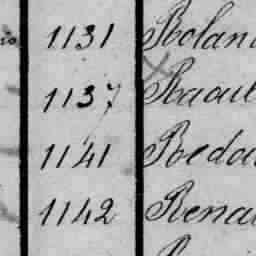 1131 Rolan
1137 Raoul
1141 Redou
1142 Rena